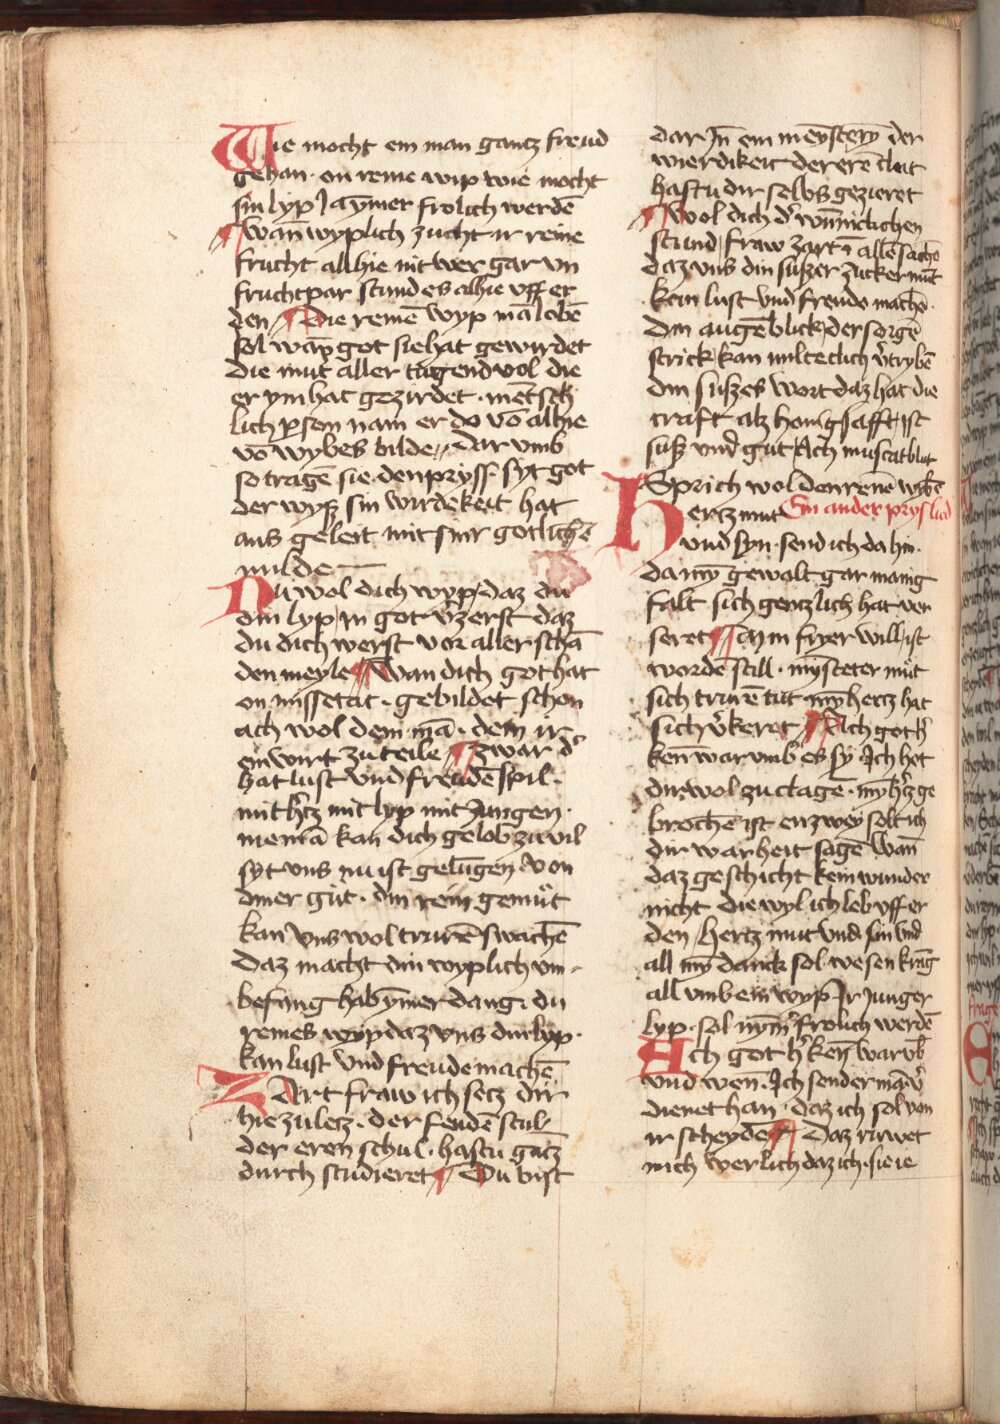 Wie mocht ein man gantz freud
gehan · on reine wip wie mocht
sin lyp Iaymer frolich werdē
¶ Wan wyplich zucht ir reine
frucht alhie nit wer gar vn
fruchtpar stund es alhie vff er
den ¶ Die reinē wyp mā lobē
sol wan got sie hat gewirdet
die mut aller tugend vol die
er ym hat gezirdet · mentsch
lich pson nam er do vō alhie
vō wybes bilde dar vmb
so tragē sie den pryss · syt got
der wyse sin wirdekeit hat
aus geleit mit sinr gotliche
milde
Nu wol dich wyp daz du
din lyp in got v̓zerst daz
du dich werst vor aller schā
den meyle ¶ Wan dich got hat
on missetat · gebildet schon
ach wol dem mā · dem ir
ein wirt zu teile ¶ zwar d̓
hat lust vnd freudē spil ·
mit h̓tz mit lyp mit zungen ·
niemā kan dich gelobē zu vil
syt vns nu ist gelūgen von
diner güt · din rein gemüt
kan vns wol trurē swachē
Daz macht din wyplich vm ·
befang hab ymer dang · du
reines wyp daz vns din lyp ·
kan lust vnd freude machē
Zart fraw ich setz dir
hie zu letz · der freudē stul
der eren schul · hastu gātz
durch studieret ¶ Du bist
dar In ein meystery der
wierdikeit der ere cleit
hastu dir selbs gezieret
¶ Wol dich d̓ wūnirlichen
stund fraw zart ī allē sachē
daz vns din süszer zucker mūt
kein lust vnd freude machē ·
Din augēblick der sorgē
strick kan milteclich v̓trybē
din süszes wort daz hat die
craft alz honigsafft ist
susz vnd gut Ach muscatblut
Sprich wol den renē wybē
Hertz mut Ein ander prys lied
vnd syn · send ich da hin ·
da my gewalt gar manig
falt sich gentzlich hat ver
seret ¶ Myin fryer will ist
wordē still · myn steter mut
sich trurē tut myn hertz hat
sich v̓keret ¶ Ach got h̓
ken warumb es sy · Ich het
dir wol zu clagē · myn h̓tz ge
brochē ist enzwey solt ich
dir warheit sagē wan
daz geschicht kein wunder
nicht die wyl ich leb vff er
den / hertz mut vnd sin vnd
all myn danck sol wesen krang
all vmb ein wyp Ir Junger
lyp · sol nym̄ frolich werdē
Ach got h̓ ken warub
vnd wen · Ich sender mā v̓
dienet han · daz ich sol von
ir scheydē ¶ Daz ruwet
mich werlich daz ich sie ie